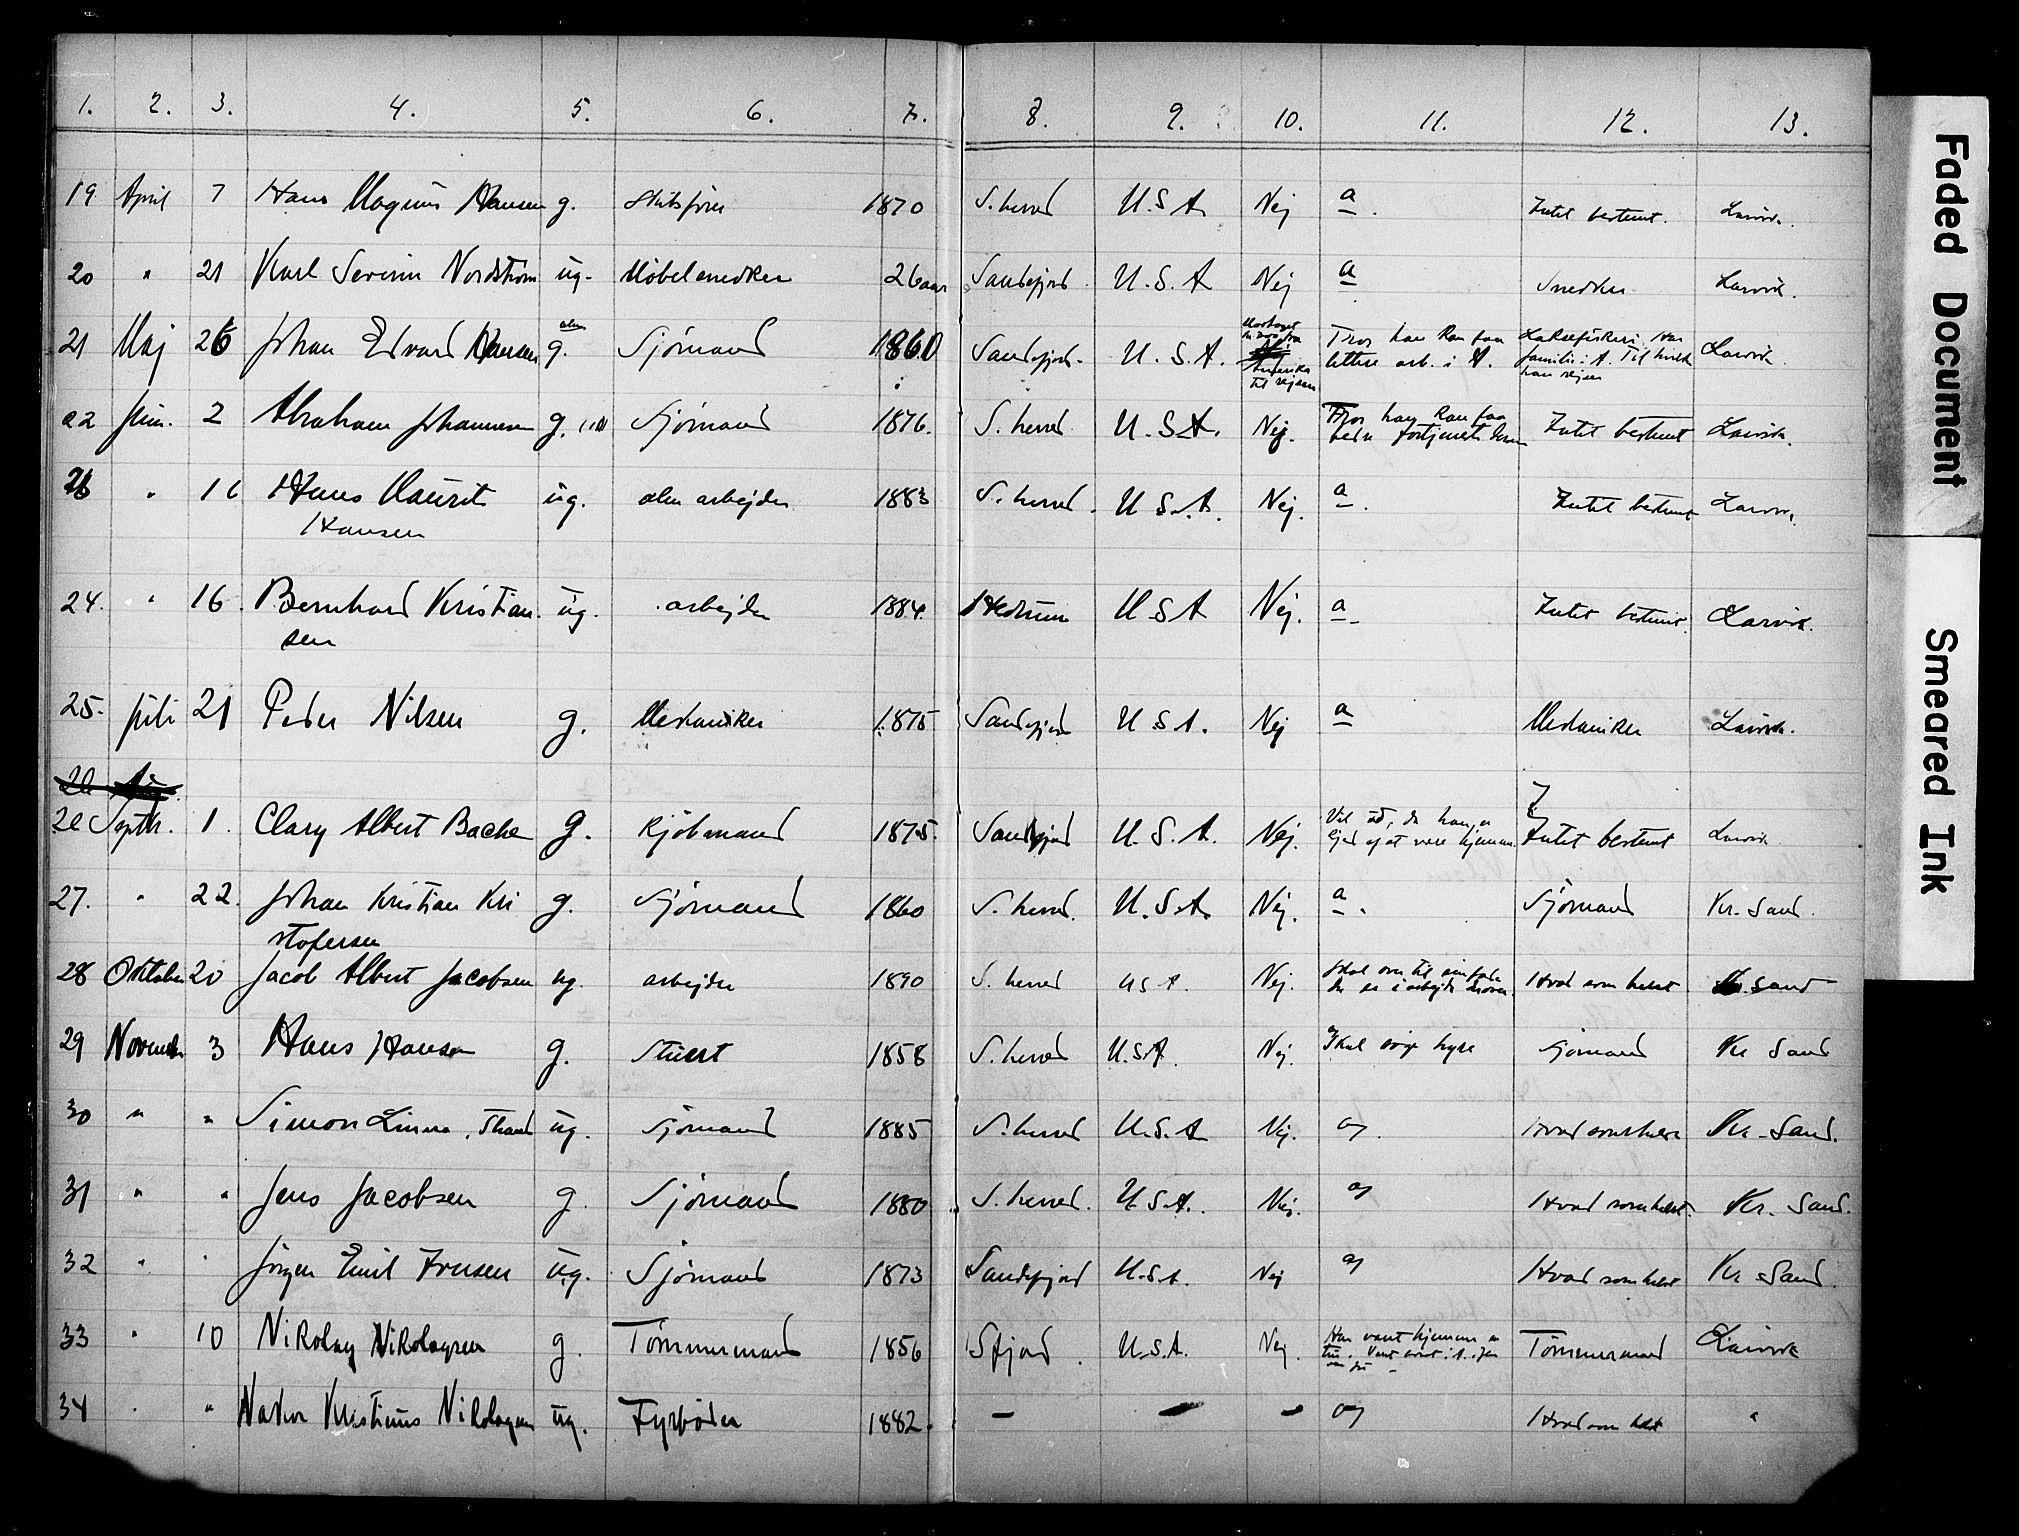 1. 2. 3. 4. 5. 6. 7. 8. 9. 10. 11. 12. 13.
19 April 7 Hans Magnus Hansen g. 1870 S. herred U.S.A. Nej a Intet bestemt. Larvik.
20 " 21 Karl Severin Nordstrøm ug. Møbelsnedker 26 aar Sandefjord. U.S.A Nej a Snedker Larvik.
21 Maj 26 Johan Edvard Hansen g. Sjømand 1860 Sandefjord. U.S.A. Amerika til rejsen Tror han kan faa lettere arb. i A. Laksefiskeri. Har familie i A. Til hvilk han rejser Larvik
22 Juni. 2 Abraham Johannesen g. Sjømand 1876. S. herred. U.S.A. Nej. Tror han kan faa bedre fortjeneste Intet bestemt Larvik.
" 16 Hans Maurit ug. alm arbejder 1883 S. herred. U.S.A. Nej. a. Intet bestemt Larvik.
Hansen
24. " 16. Bernhard Kristian ug. arbejder 1884. Hedrum U.S.A Nej. a Intet bestemt. Larvik.
sen
25. Juli 21 Peder Nilsen g. Mekaniker 1875 Sandefjord U.S.A. Nej a Mekaniker Larvik.
Septbr. 1. Clary Albert Bache g. Kjøbmand 1875. Sandefjord U.S.A. Nej. Vil ud, da han er lejd af at være hjemme. Intet bestemt Larvik
27. " 22. Johan Kristian Kri g. Sjømand 1860 S. herred. U.S.A. Nej. a. Sjømand Kr. Sand.
stofersen
28 Oktober 20 Jacob Albert Jacobsen ug. arbejder 1890 S. herred U S A. Nej. Skal over til sin fader der er i arbejde derover. Hvad som helst Kr. Sand
29 November 3 Hans Hansen g. Stuert 1858 S. herred U.S.A. Nej. Skal søge hyre Sjømand Kr Sand
30 " " Simon Linne. ug. Sjømand 1885 S. herred U.S.A Nej. a Hvad somhelst Kr. Sand.
31 " " Jens Jacobsen g. Sjømand 1880 S. herred. U.S.A. Nej. a Hvad somhelst. Kr. Sand.
32 " " Jørgen Emil Iversen ug. Sjømand 1873 Sandefjord U.S.A. Nej a Hvad somhelst Kr Sand.
33 " 10 Nikolay Nikolaysen g. Tømmermand 1856 Sfjord. U.S.A. Nej. Har været hjemme Tømmermand Larvik
34 " " Kristinus Nikolaysen ug. Fyrbøder 1882. — — — a Hvad som helst "
Faded Document
Smeared Ink